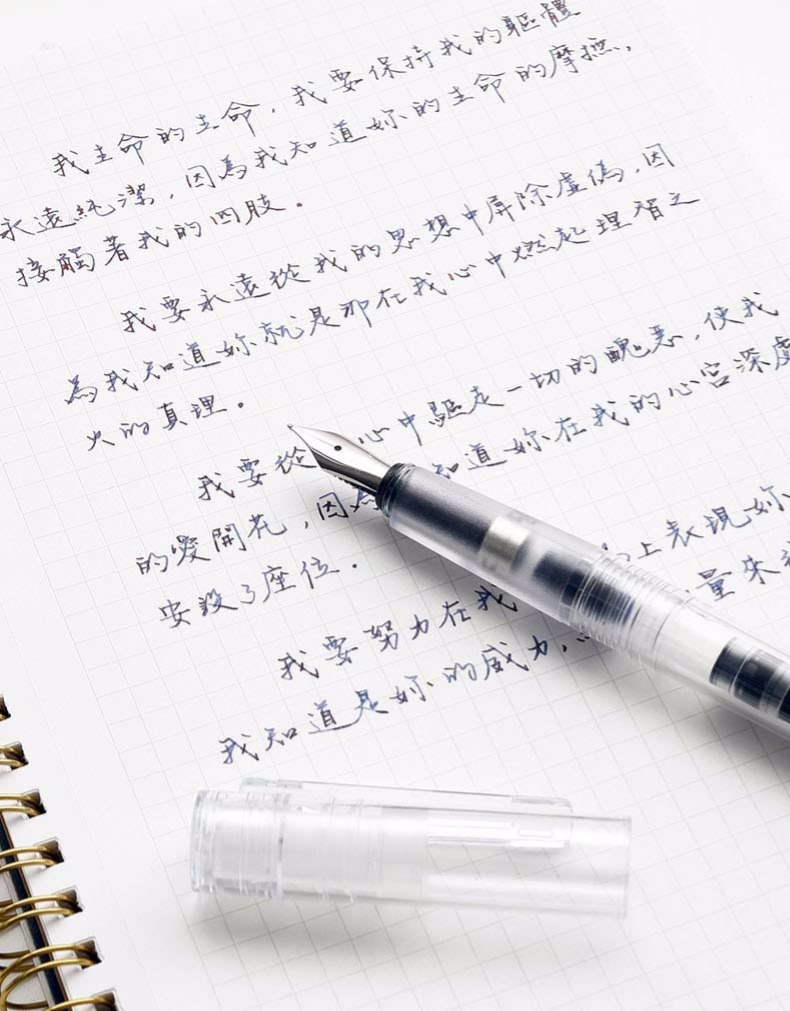 我生命的生命，我要保持我的軀體
永遠純潔，因為我知道妳的生命的摩撫，
接觸著我的四肢。
我要永遠從我的思想中屏除虛偽，因
為我知道妳就是那在我心中燃起理智之
火的真理。
我要從 心中驅走一切的醜惡，使我
的愛開花，因為 知道妳在我的心宮深處
安設了座位。
我要努力在我 上表現妳
我知道是妳的威力， 量來